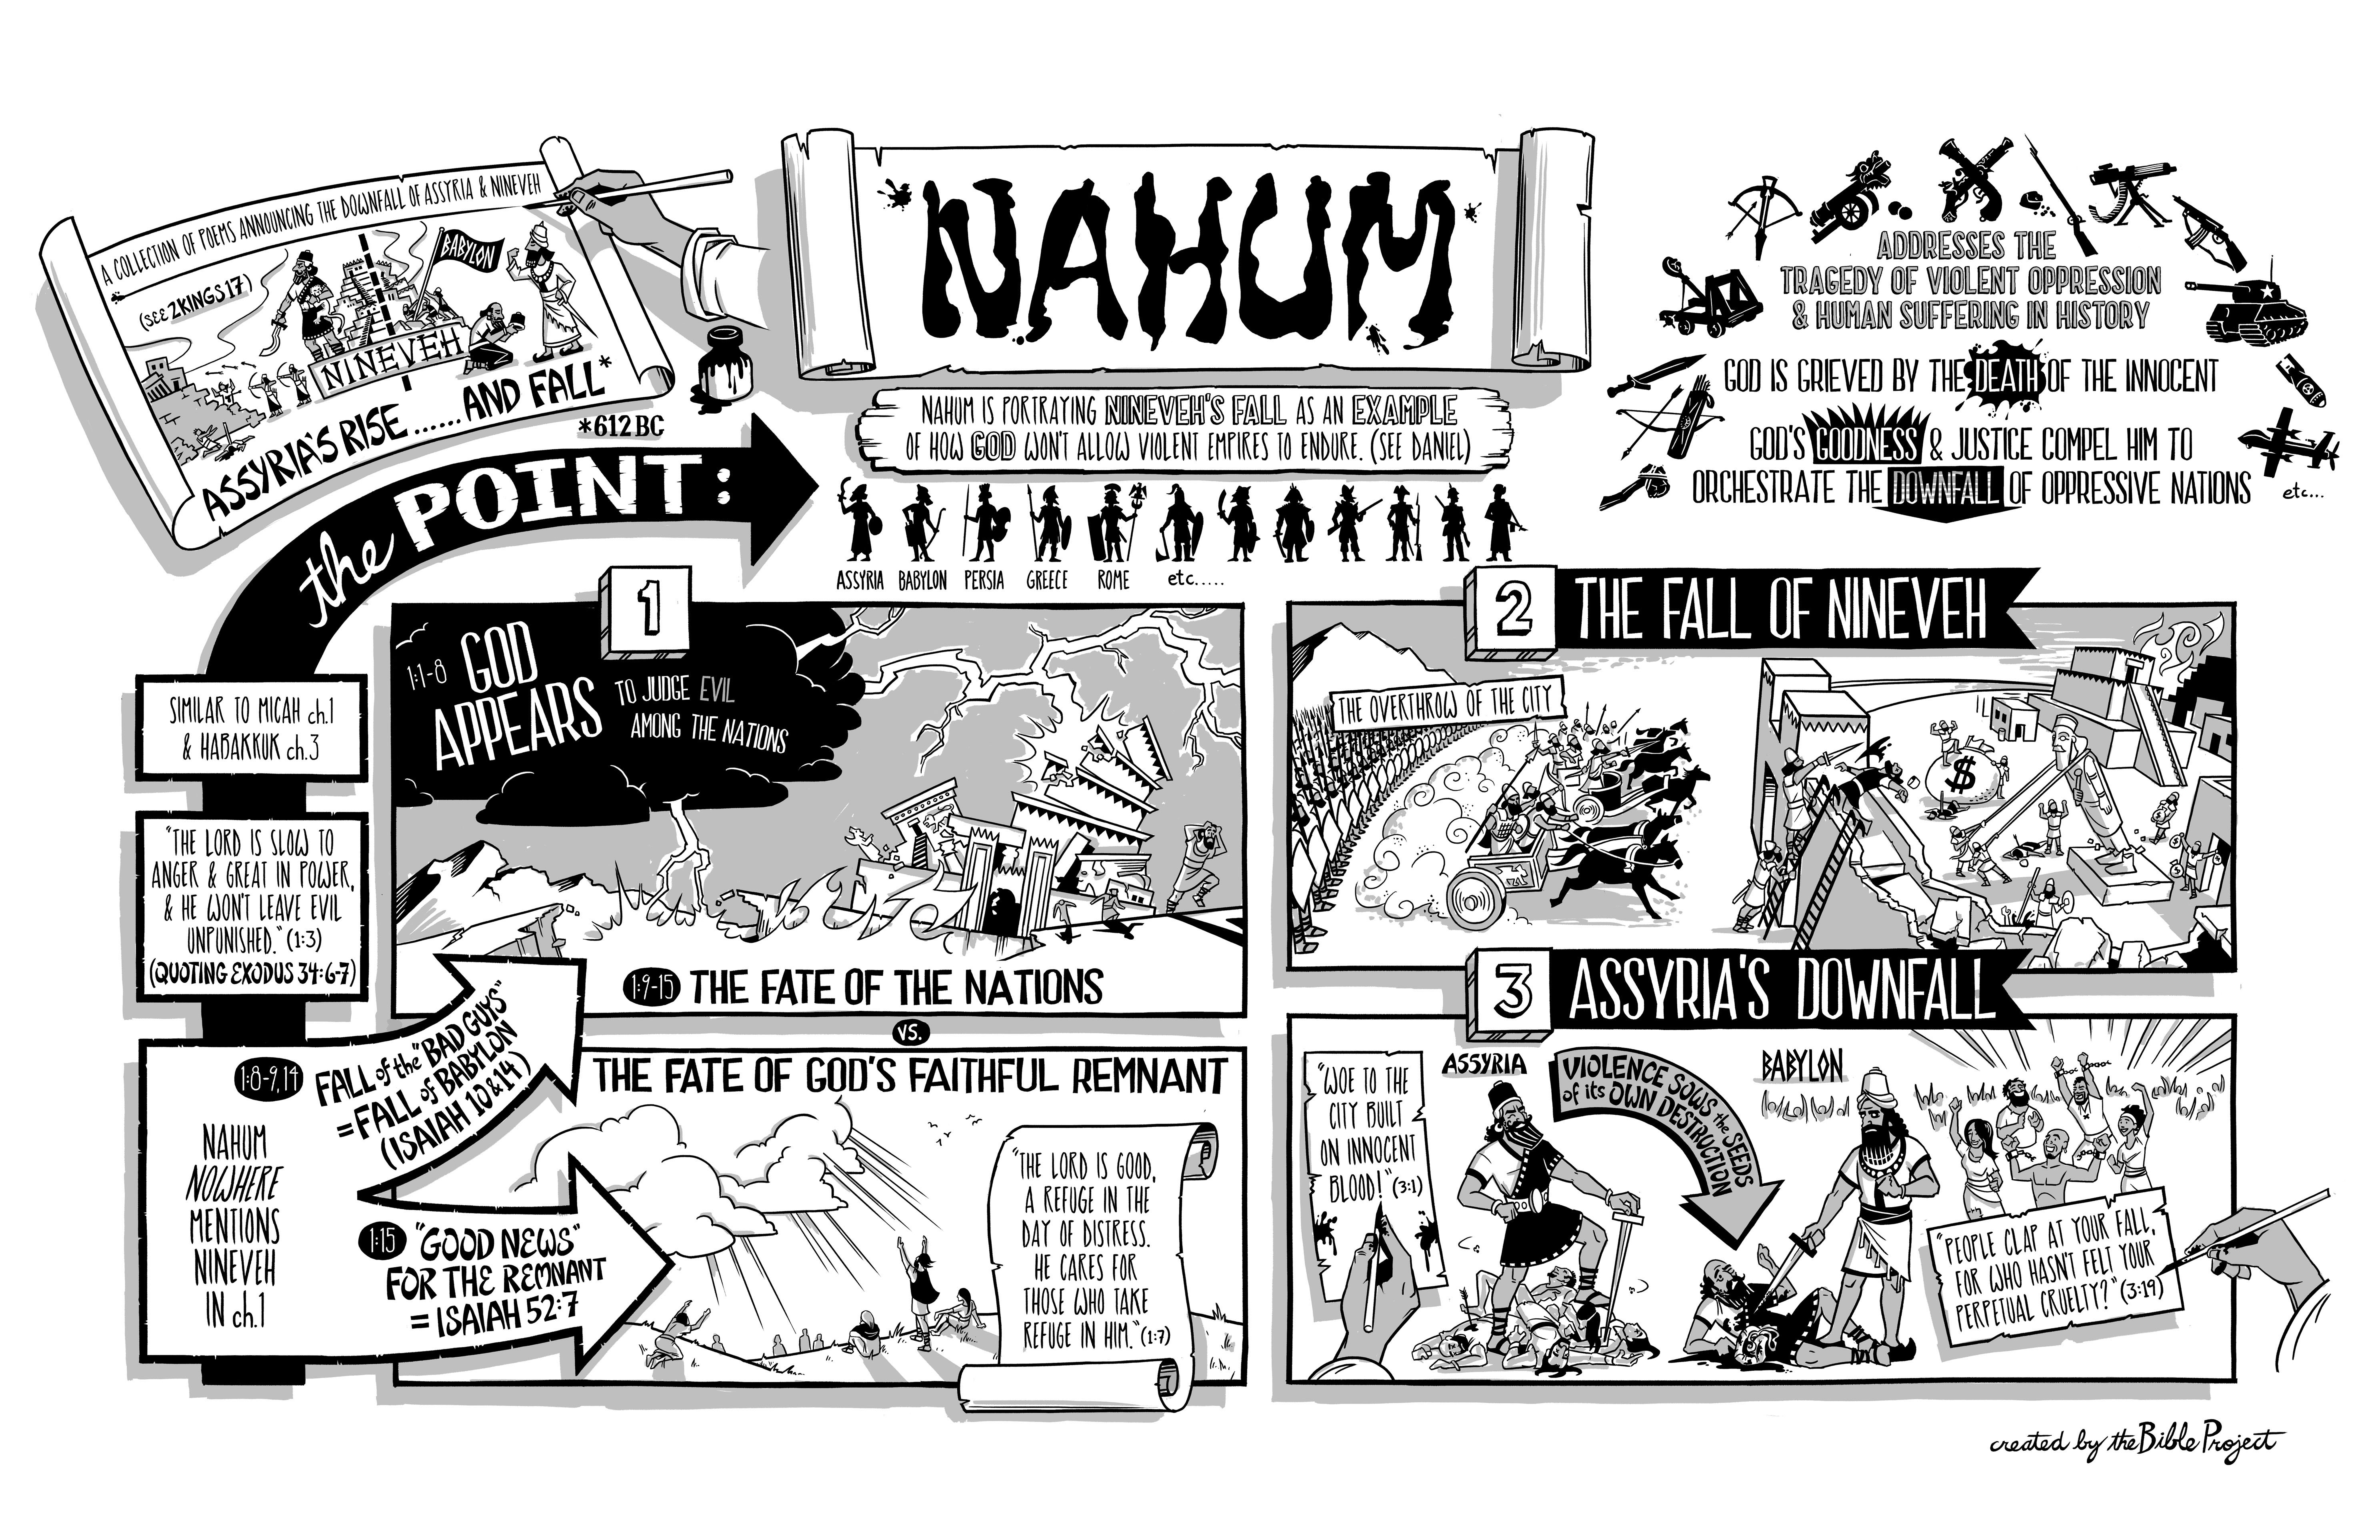 A COLLECTION OF POEMS ANNOUNCING THE DOWNFALL OF ASSYRIA & NINEVEH
(SEE 2 KINGS 17)
BABYLON
NINEVEH
ASSYRIA'S RISE ...... AND FALL*
*612 BC
NAHUM
NAHUM IS PORTRAYING NINEVEH'S FALL AS AN EXAMPLE
OF HOW GOD WON'T ALLOW VIOLENT EMPIRES TO ENDURE. (SEE DANIEL)
ASSYRIA BABYLON PERSIA GREECE ROME etc.....
ADDRESSES THE
TRAGEDY OF VIOLENT OPPRESSION
& HUMAN SUFFERING IN HISTORY
GOD IS GRIEVED BY THE DEATH OF THE INNOCENT
GOD'S GOODNESS & JUSTICE COMPEL HIM TO
ORCHESTRATE THE DOWNFALL OF OPPRESSIVE NATIONS
etc...
the POINT:
SIMILAR TO MICAH ch.1
& HABAKKUK ch.3
"THE LORD IS SLOW TO
ANGER & GREAT IN POWER,
& HE WON'T LEAVE EVIL
UNPUNISHED." (1:3)
(QUOTING EXODUS 34:6-7)
1:8-9,14
NAHUM
NOWHERE
MENTIONS
NINEVEH
IN ch.1
FALL of the "BAD GUYS"
= FALL of BABYLON
(ISAIAH 10 & 14)
1:15 "GOOD NEWS"
FOR THE REMNANT
= ISAIAH 52:7
1
1:1-8 GOD
APPEARS
TO JUDGE EVIL
AMONG THE NATIONS
1:9-15 THE FATE OF THE NATIONS
VS.
THE FATE OF GOD'S FAITHFUL REMNANT
"THE LORD IS GOOD,
A REFUGE IN THE
DAY OF DISTRESS.
HE CARES FOR
THOSE WHO TAKE
REFUGE IN HIM." (1:7)
2 THE FALL OF NINEVEH
THE OVERTHROW OF THE CITY
$
3 ASSYRIA'S DOWNFALL
"WOE TO THE
CITY BUILT
ON INNOCENT
BLOOD!" (3:1)
ASSYRIA
VIOLENCE SOWS the SEEDS
of its OWN DESTRUCTION
BABYLON
"PEOPLE CLAP AT YOUR FALL,
FOR WHO HASN'T FELT YOUR
PERPETUAL CRUELTY?" (3:19)
created by the Bible Project